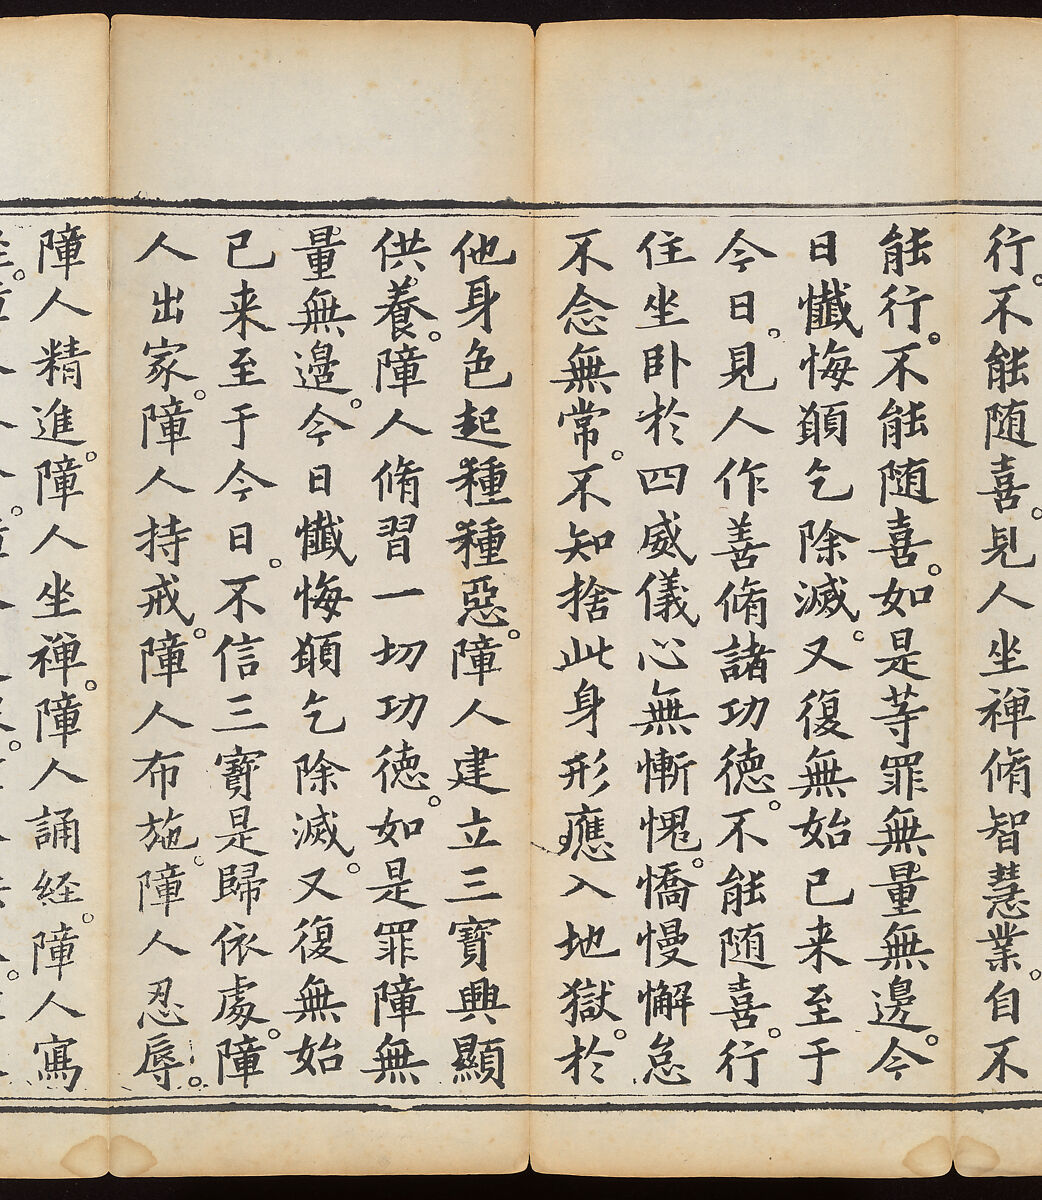 行。不能随喜。見人坐禅脩智慧業。自不
能行。不能随喜。如是等罪無量無邊。今
日懺悔願乞除滅。又復無始已来至于
今日。見人作善脩諸功德。不能随喜。行
住坐卧於四威儀心無慚愧。憍慢懈怠
不念無常。不知捨此身形應入地獄。於
他身色起種種惡。障人建立三寳興顯
供養。障人脩習一切功德。如是罪障無
量無邊。今日懺悔願乞除滅。又復無始
已来至于今日。不信三寳是歸依處。障
人出家。障人持戒。障人布施。障人忍辱。
障人精進。障人坐禅。障人誦経。障人寫